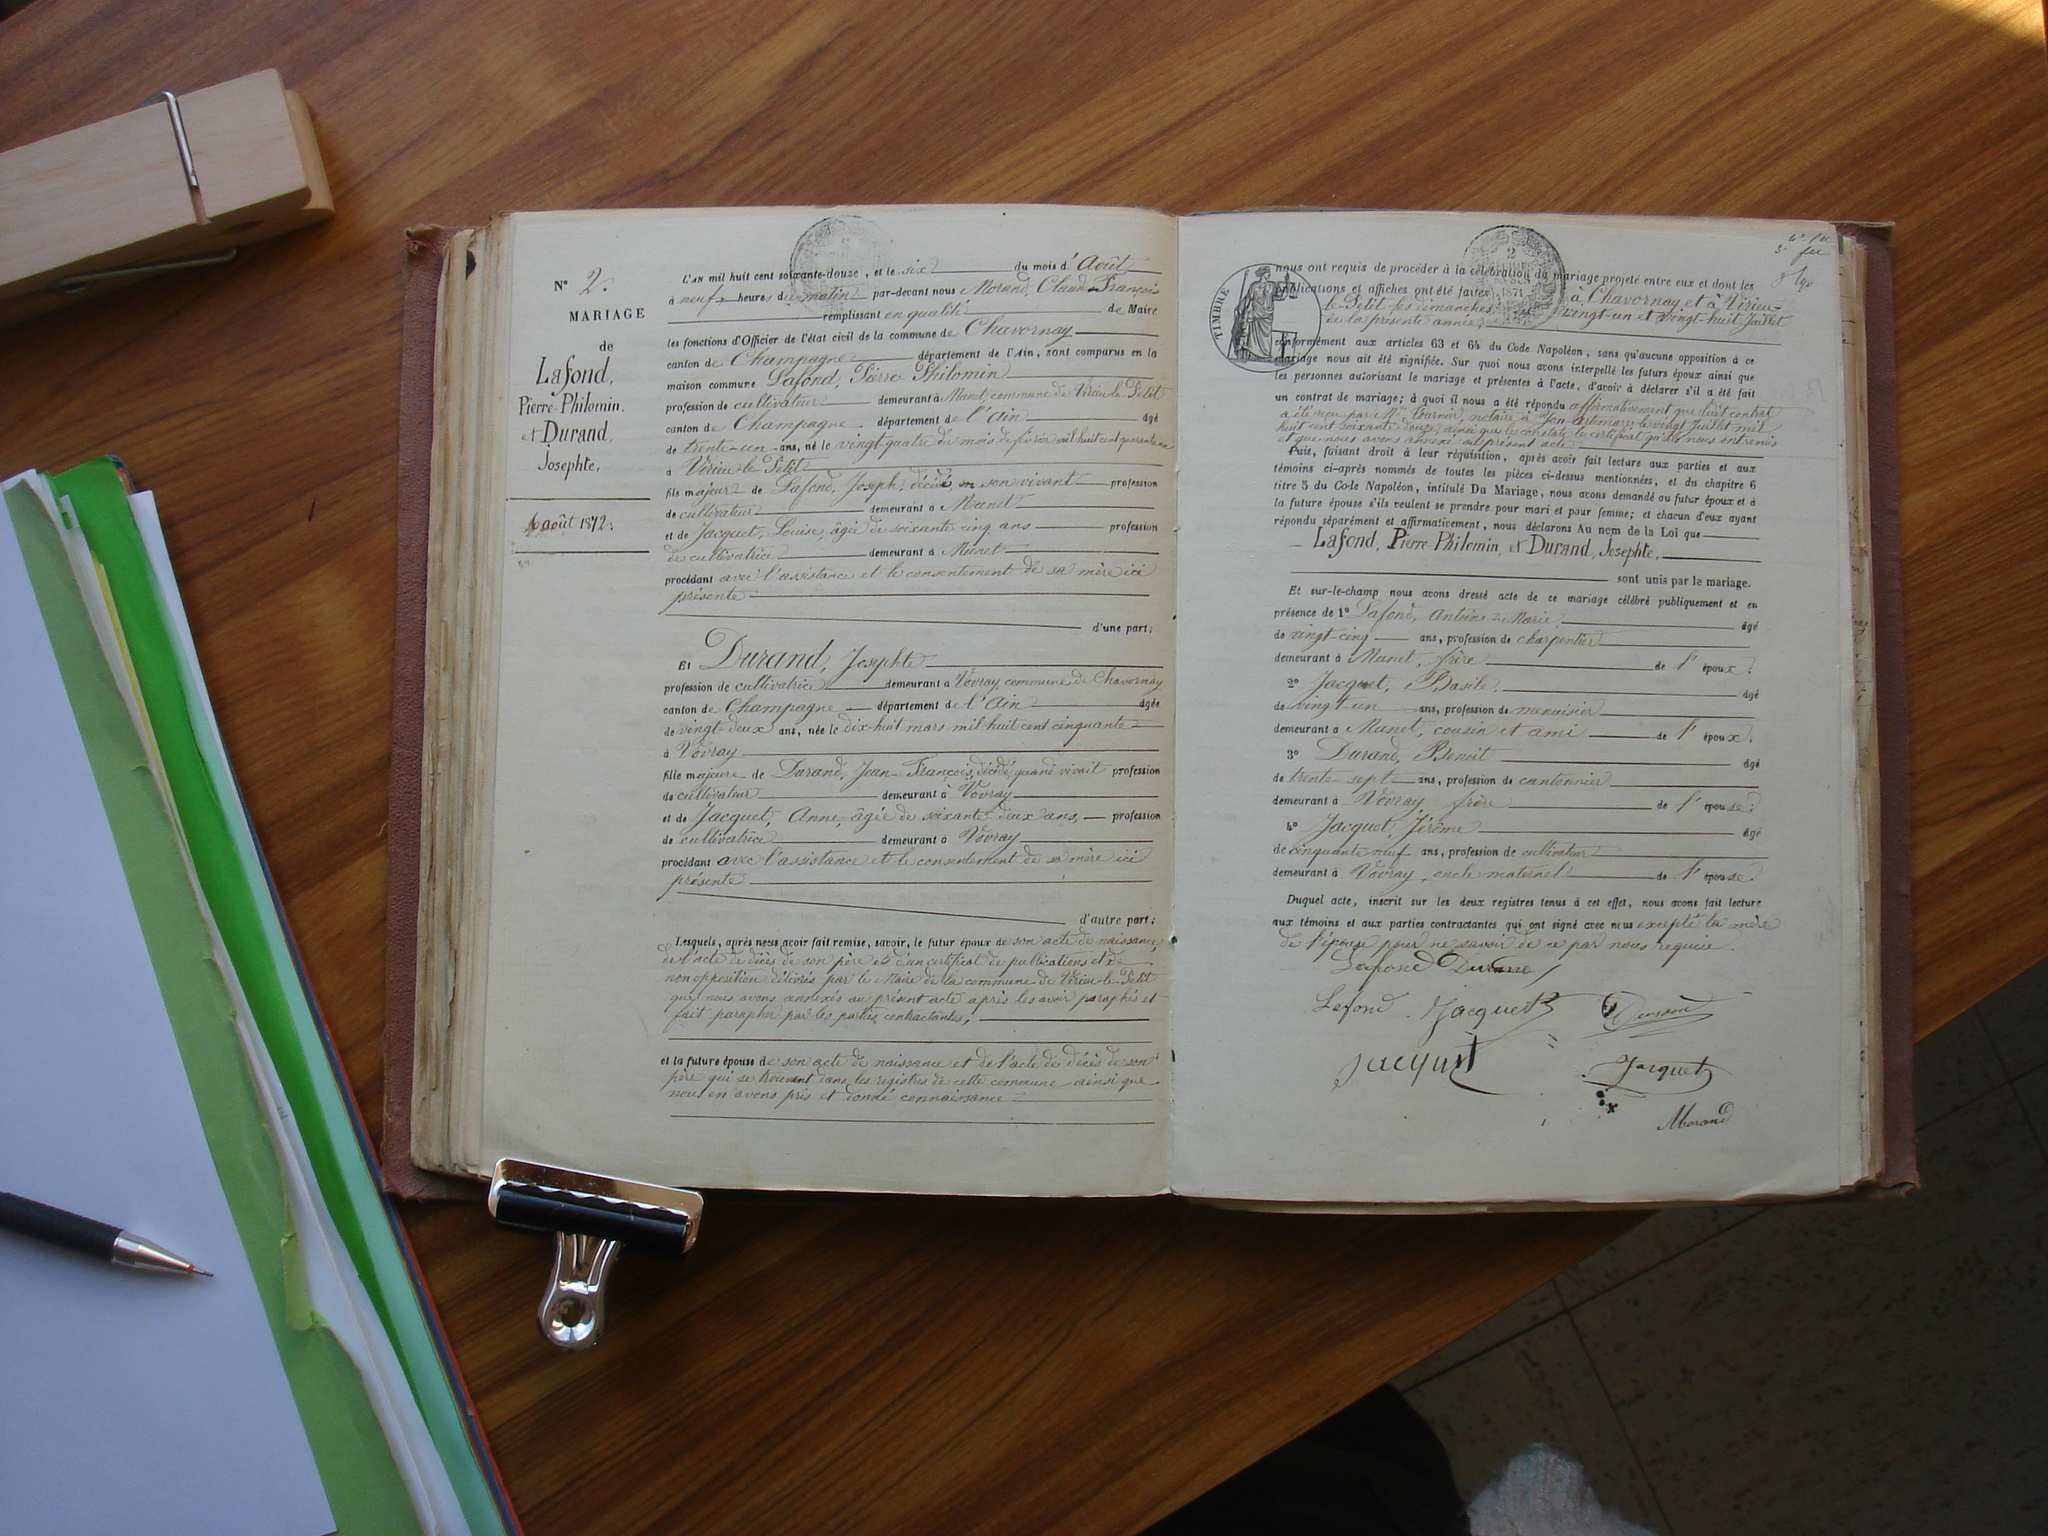 N° 2.
MARIAGE
de
Lafond,
Pierre-Philomin.
et Durand,
Josephte,
6 août 1872.
L'AN mil huit cent soixante-douze, et le six du mois d'Août
à neuf heures du matin par-devant nous Morand, Claude François
remplissant en qualité de Maire
les fonctions d'Officier de l'état civil de la commune de Chavornay
canton de Champagne département de l'Ain, sont comparus en la
maison commune Lafond, Pierre Philomin
profession de cultivateur demeurant à Munet, commune de Virieu-le-Petit
canton de Champagne département de l'Ain âgé
de trente-un ans, né le vingt-quatre du mois de février mil huit cent quarante un
à Virieu-le-Petit
fils majeur de Lafond, Joseph, décédé, en son vivant profession
de cultivateur demeurant à Munet
et de Jacquet, Louise, âgée de soixante cinq ans profession
de cultivatrice demeurant à Munet
procédant avec l'assistance et le consentement de sa mère ici
présente
d'une part;
Et Durand, Josephte
profession de cultivatrice demeurant à Vovray, commune de Chavornay
canton de Champagne département de l'Ain âgée
de vingt-deux ans, née le dix-huit mars mil huit cent cinquante
à Vovray
fille majeure de Durand, Jean-François, décédé, quand vivait profession
de cultivateur demeurant à Vovray
et de Jacquet, Anne, âgée de soixante deux ans, profession
de cultivatrice demeurant à Vovray
procédant avec l'assistance et le consentement de sa mère ici
présente
d'autre part;
Lesquels, après nous avoir fait remise, savoir, le futur époux de son acte de naissance,
de l'acte de décès de son père et d'un certificat de publications et de
non opposition délivrés par le Maire de la commune de Virieu-le-Petit
que nous avons annexés au présent acte après les avoir paraphés et
fait parapher par les parties contractantes,
et la future épouse de son acte de naissance et de l'acte de décès de son
père qui se trouvent dans les registres de cette commune ainsi que
nous en avons pris et donné connaissance
TIMBRE
2
1871
nous ont requis de procéder à la célébration du mariage projeté entre eux et dont les
publications et affiches ont été faites à Chavornay et à Virieu-
le-Petit les dimanches vingt-un et vingt-huit Juillet
de la présente année
conformément aux articles 63 et 64 du Code Napoléon, sans qu'aucune opposition à ce
mariage nous ait été signifiée. Sur quoi nous avons interpellé les futurs époux ainsi que
les personnes autorisant le mariage et présentes à l'acte, d'avoir à déclarer s'il a été fait
un contrat de mariage; à quoi il nous a été répondu affirmativement que ledit contrat
a été reçu par Me notaire à Artemare, le vingt Juillet mil
huit cent soixante-douze, ainsi que le constate le certificat qu'ils nous ont remis
et que nous avons annexé au présent acte
Puis, faisant droit à leur réquisition, après avoir fait lecture aux parties et aux
témoins ci-après nommés de toutes les pièces ci-dessus mentionnées, et du chapitre 6
titre 5 du Code Napoléon, intitulé Du Mariage, nous avons demandé au futur époux et à
la future épouse s'ils veulent se prendre pour mari et pour femme; et chacun d'eux ayant
répondu séparément et affirmativement, nous déclarons Au nom de la Loi que
Lafond, Pierre-Philomin, et Durand, Josephte,
sont unis par le mariage.
Et sur-le-champ nous avons dressé acte de ce mariage célébré publiquement et en
présence de 1° Lafond, Antoine-Marie âgé
de vingt-cinq ans, profession de charpentier
demeurant à Munet, frère de l'époux;
2° Jacquet, Basile, âgé
de vingt-un ans, profession de menuisier
demeurant à Munet, cousin et ami de l'époux;
3° Durand, Benoit âgé
de trente-sept ans, profession de cantonnier
demeurant à Vovray frère de l'épouse;
4° Jacquet, Jérôme âgé
de cinquante-neuf ans, profession de cultivateur
demeurant à Vovray, oncle maternel de l'épouse
Duquel acte, inscrit sur les deux registres tenus à cet effet, nous avons fait lecture
aux témoins et aux parties contractantes qui ont signé avec nous excepté la mère
de l'épouse pour ne savoir de ce par nous requise.
Lafond Durand
Lafond Jacquet Durand
Jacquet Jacquet
Morand